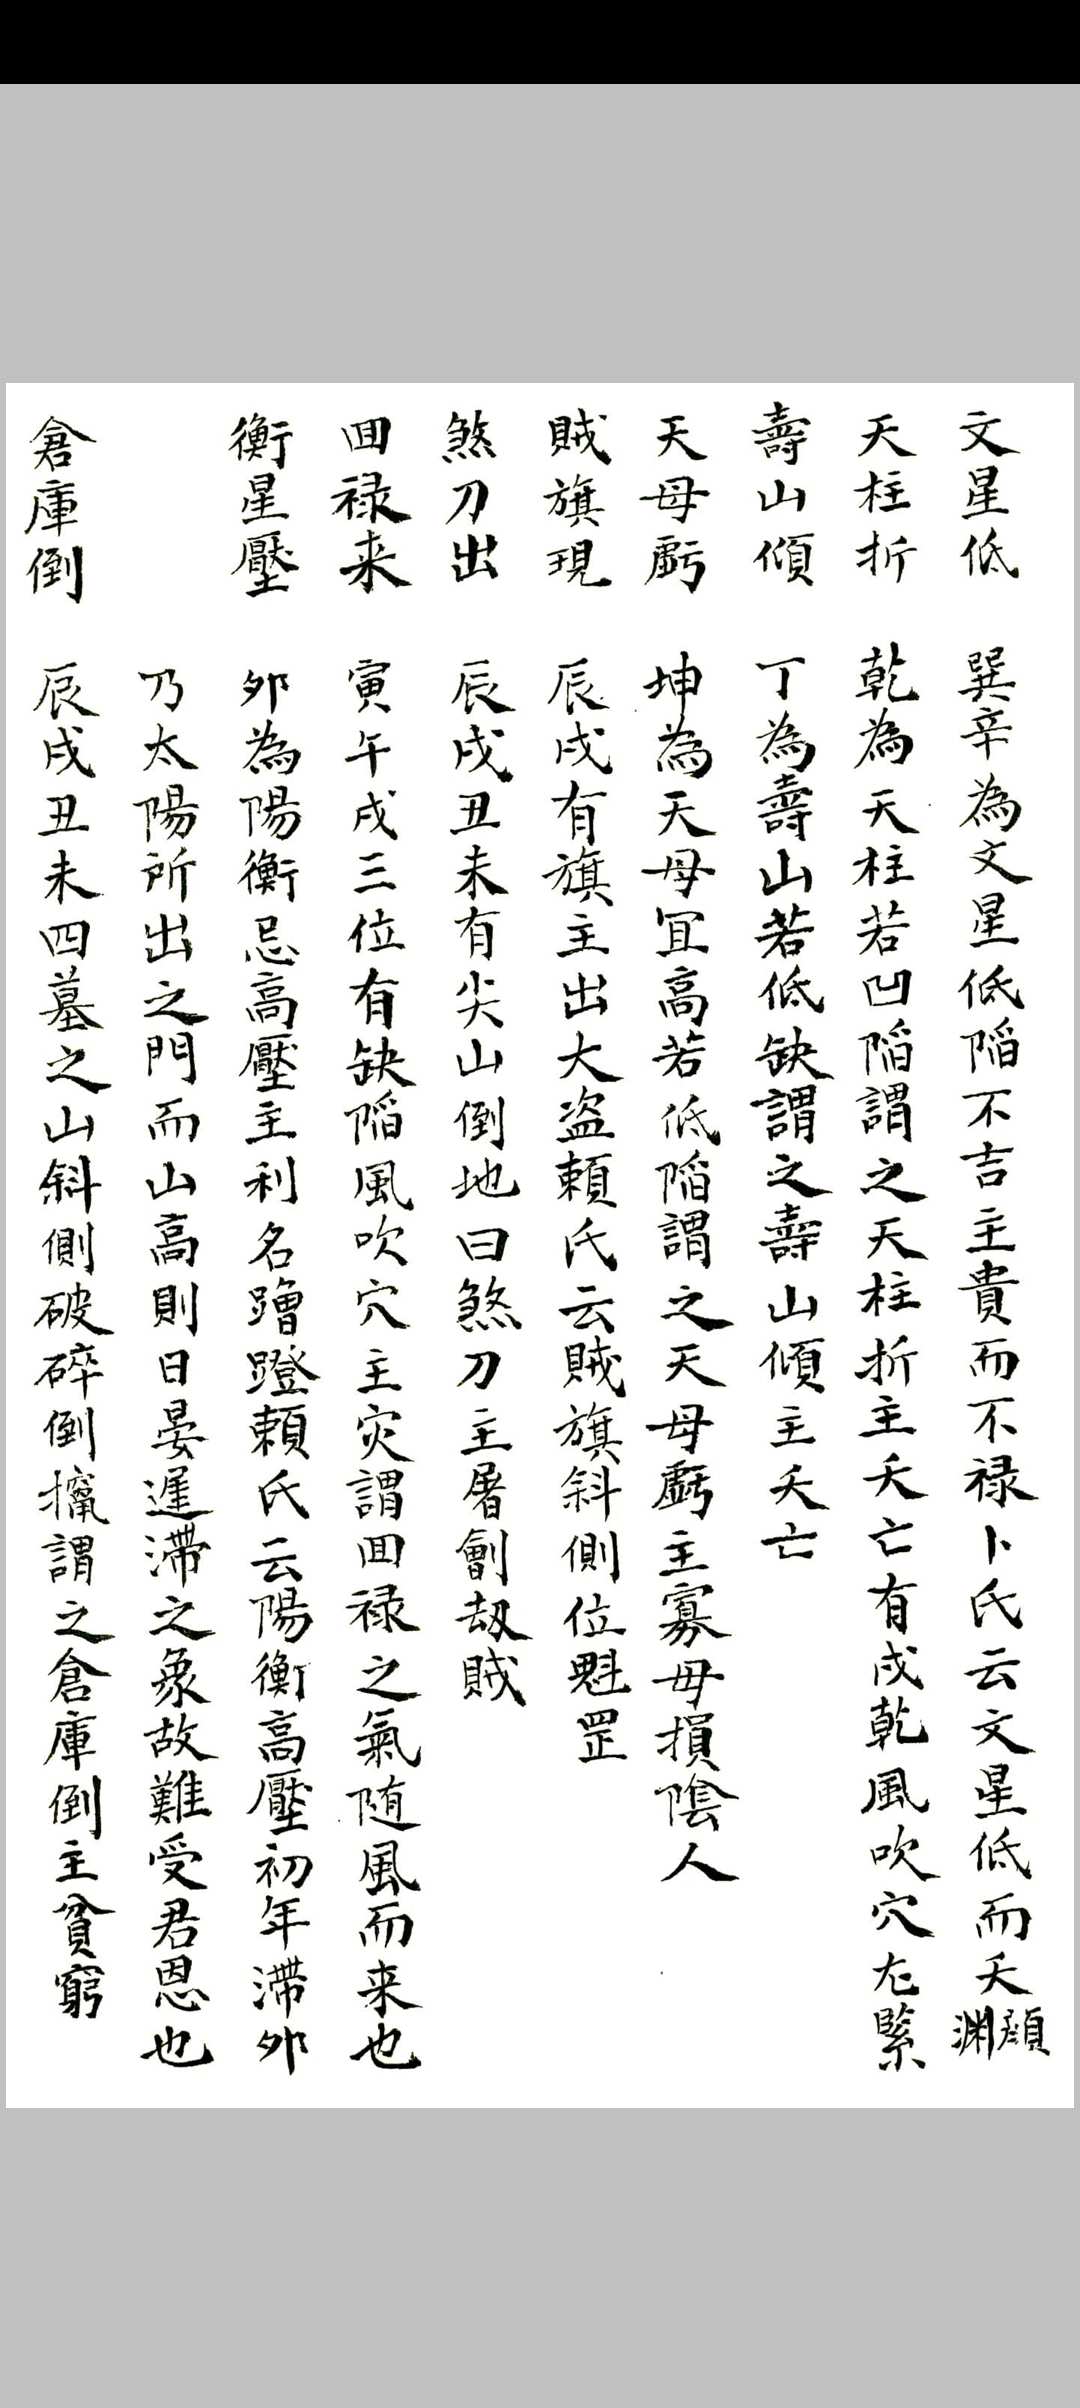 文星低 巽辛為文星低陷不吉主貴而不禄卜氏云文星低而夭顔渊
天柱折 乾為天柱若凹陷謂之天柱折主夭亡有戌乾風吹穴尤緊
壽山傾 丁為壽山若低缺謂之壽山傾主夭亡
天母虧 坤為天母冝高若低陷謂之天母虧主寡母損陰人
賊旗現 辰戌有旗主出大盗頼氏云賊旗斜側位魁罡
煞刀出 辰戌丑未有尖山倒地曰煞刀主屠劊刼賊
囬禄来 寅午戌三位有缺陷風吹穴主灾謂囬禄之氣随風而来也
衡星壓 夘為陽衡忌高壓主利名蹭蹬頼氏云陽衡高壓初年滯夘
乃太陽所出之門而山高則日晏遲滯之象故難受君恩也
倉庫倒 辰戌丑未四墓之山斜側破碎倒攛謂之倉庫倒主貧窮